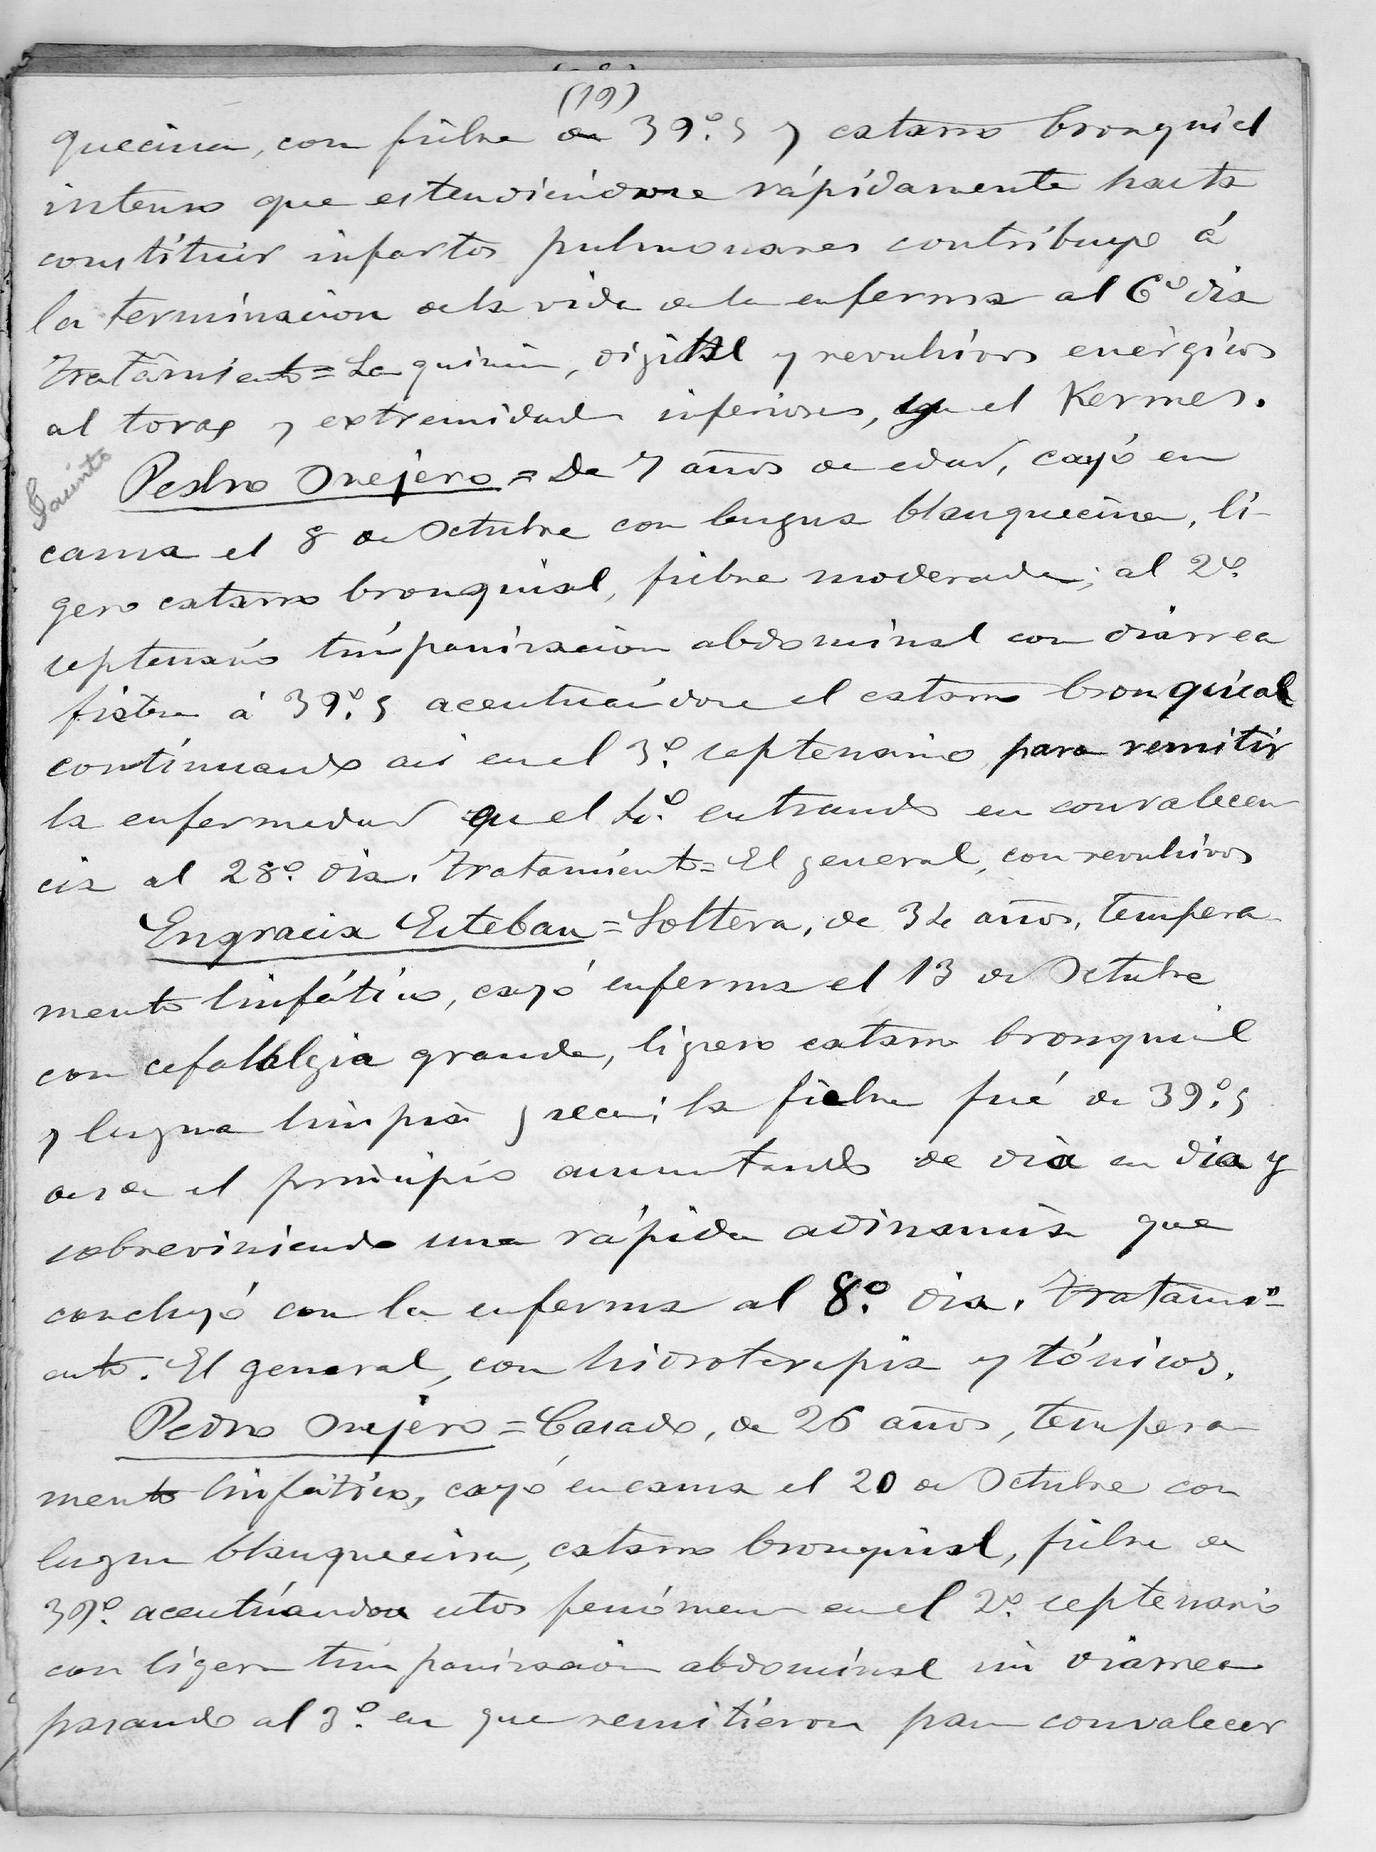 (19)
quecina, con fiebre de 39º.5 y catarro bronquial
intenso que estendiéndose rápidamente hasta
constituir infartos pulmonares contribuyó á
la terminacion de la vida de la enferma al 6º dia
Tratamiento = La quinina, digital y revulsivos enérgicos
al torax y extremidades inferiores, y el Kermes.
Pedro Orejero = De 7 años de edad, cayó en
cama el 8 de Octubre con lengua blanquecina, li-
gero catarro bronquial, fiebre moderada; al 2º.
septenario timpanizacion abdominal con diarrea
fiebre á 39º.5 acentuándose el catarro bronquial
continuando asi en el 3º. septenario para remitir
la enfermedad en el 4º. entrando en convalecen
cia al 28º. dia. Tratamiento = El general, con revulsivos
Engracia Esteban = Soltera, de 34 años, tempera
mento linfático, cayó enferma el 13 de Octubre
con cefalalgia grande, ligero catarro bronquial
y lengua limpia y seca; la fiebre fué de 39º.5
desde el principio aumentando de dia en dia y
sobreviniendo una rápida adinamia que
concluyó con la enferma al 8º. dia. Tratami-
ento. El general, con hidroterapia y tónicos.
Pedro Orejero = Casado, de 26 años, tempera
mento linfático, cayó en cama el 20 de Octubre con
lengua blanquecina, catarro bronquial, fiebre de
39º. acentúandose estos fenómenos en el 2º. septenario
con ligera timpanizacion abdominal sin diarrea
pasando al 3º. en que remitieron para convalecer